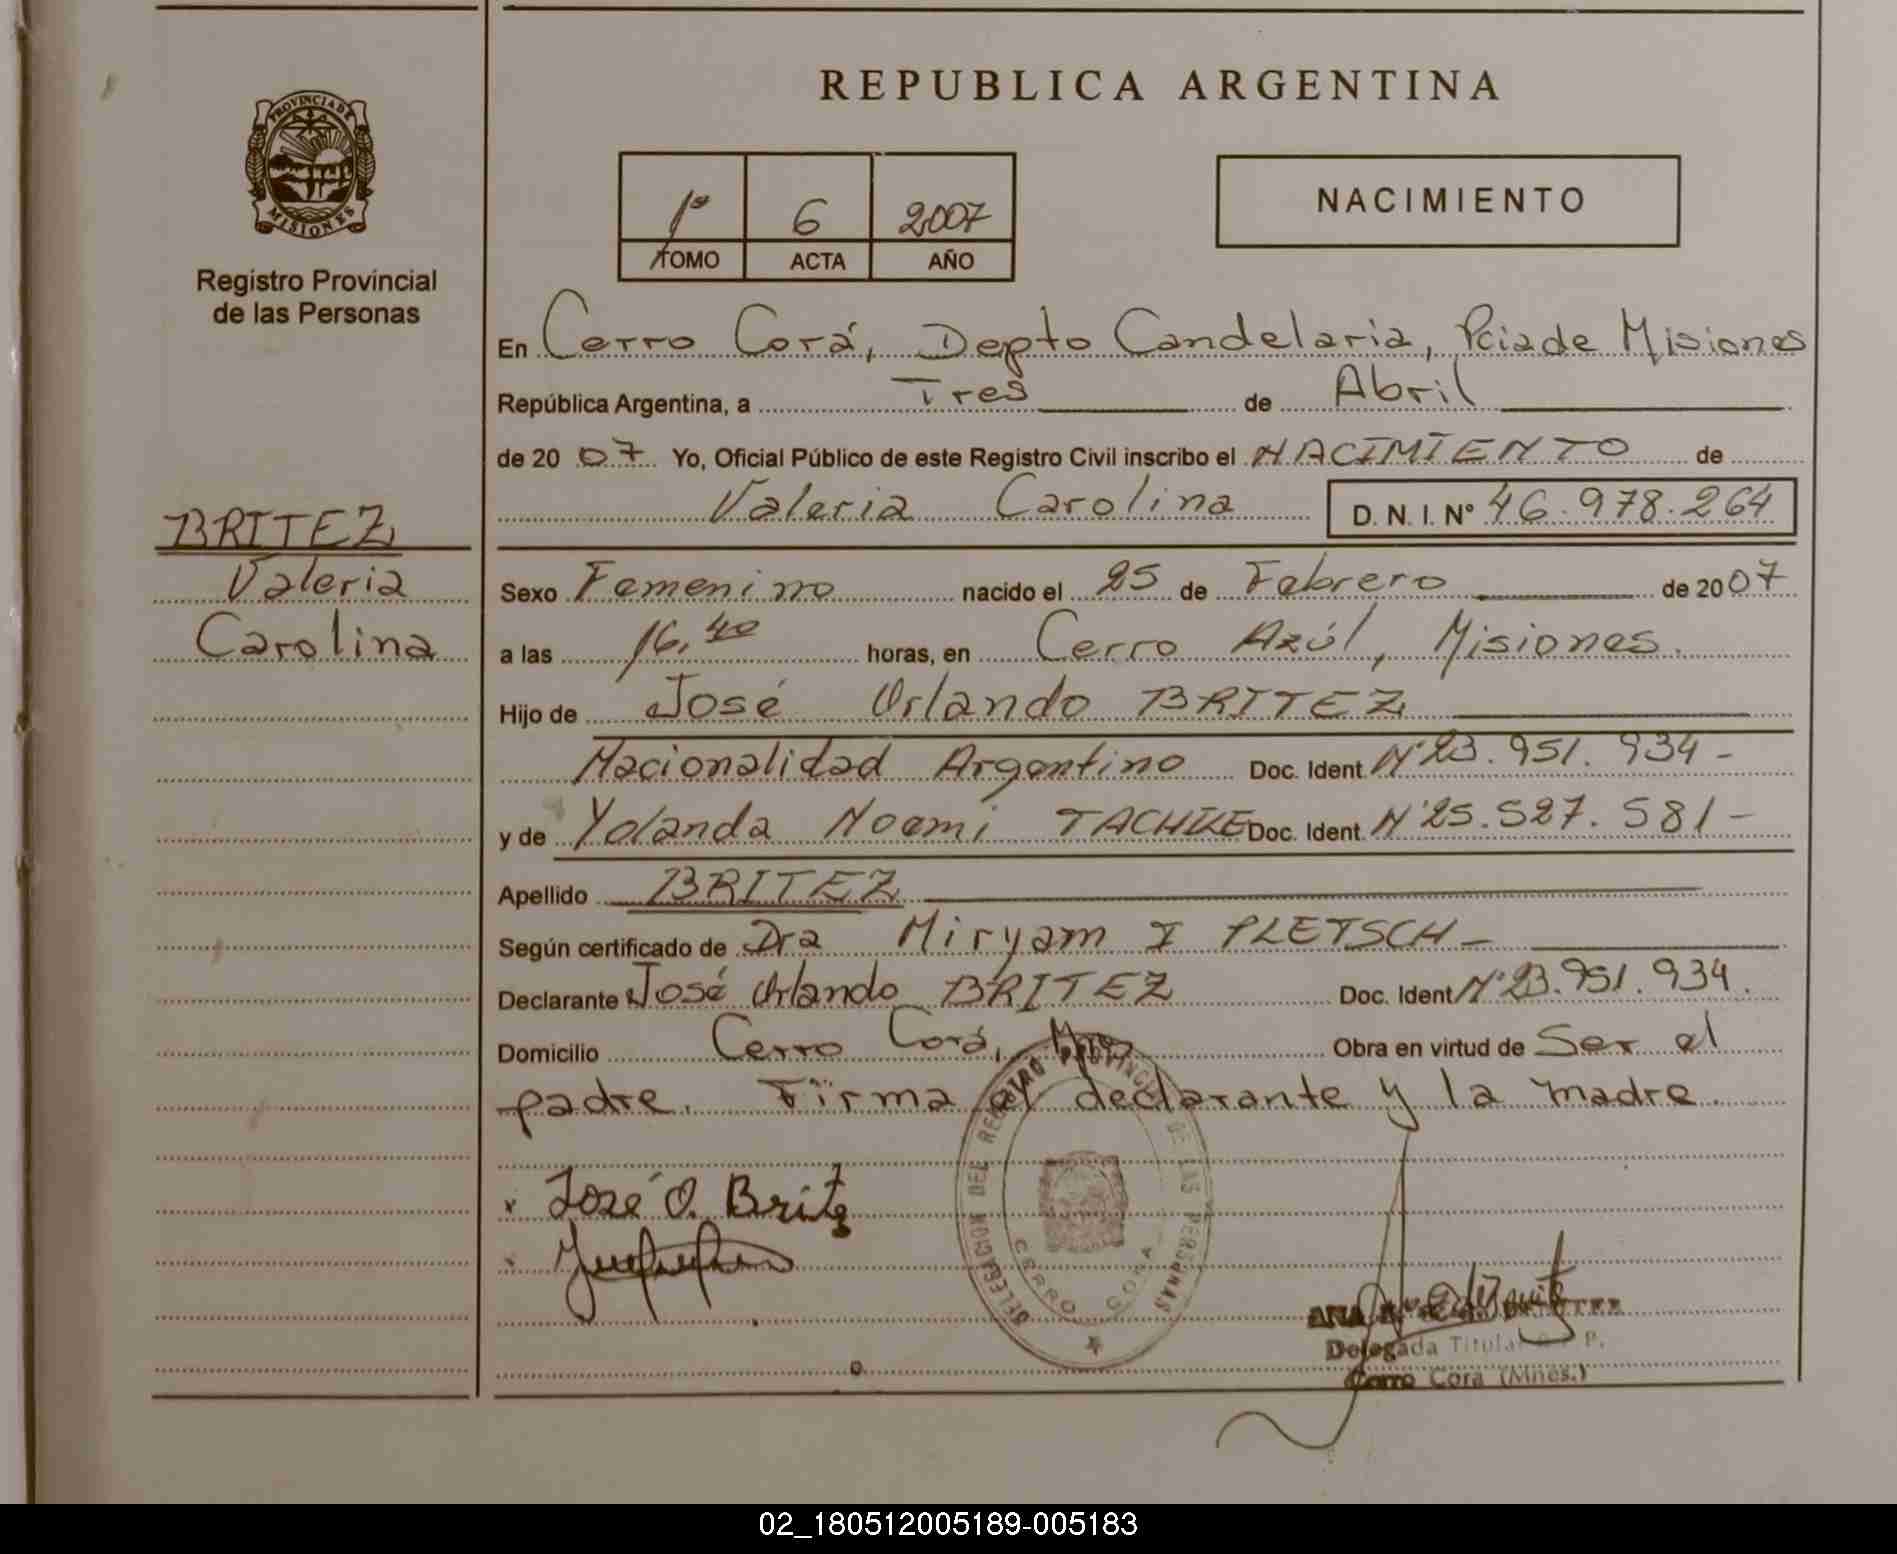 REPUBLICA ARGENTINA
PROVINCIA DE
MISIONES
Registro Provincial
de las Personas
1º 6 2007
TOMO ACTA AÑO
NACIMIENTO
En Cerro Corá, Depto Candelaria, Pcia de Misiones
República Argentina, a Tres de Abril
de 20 07 Yo, Oficial Público de este Registro Civil inscribo el NACIMIENTO de
Valeria Carolina D. N. I. Nº 46.978.264
BRITEZ
Valeria
Carolina
Sexo Femenino nacido el 25 de Febrero de 2007
a las 16,40 horas, en Cerro Azúl, Misiones.
Hijo de José Orlando BRITEZ
Nacionalidad Argentino Doc. Ident. Nº 23.951.934-
y de Yolanda Noemi Doc. Ident. Nº 25.527.581-
Apellido BRITEZ
Según certificado de Dra Miryam I PLETSCH-
Declarante José Orlando BRITEZ Doc. Ident Nº 23.951.934.
Domicilio Cerro Corá, Mnes Obra en virtud de Ser el
padre. Firma el declarante y la madre.
DELEGACION DEL REGISTRO PROVINCIAL DE LAS PERSONAS
CERRO CORA
x José O. Britez
ANA
Delegada Titular R. P. P.
Cerro Corá (Mnes.)
02_180512005189-005183